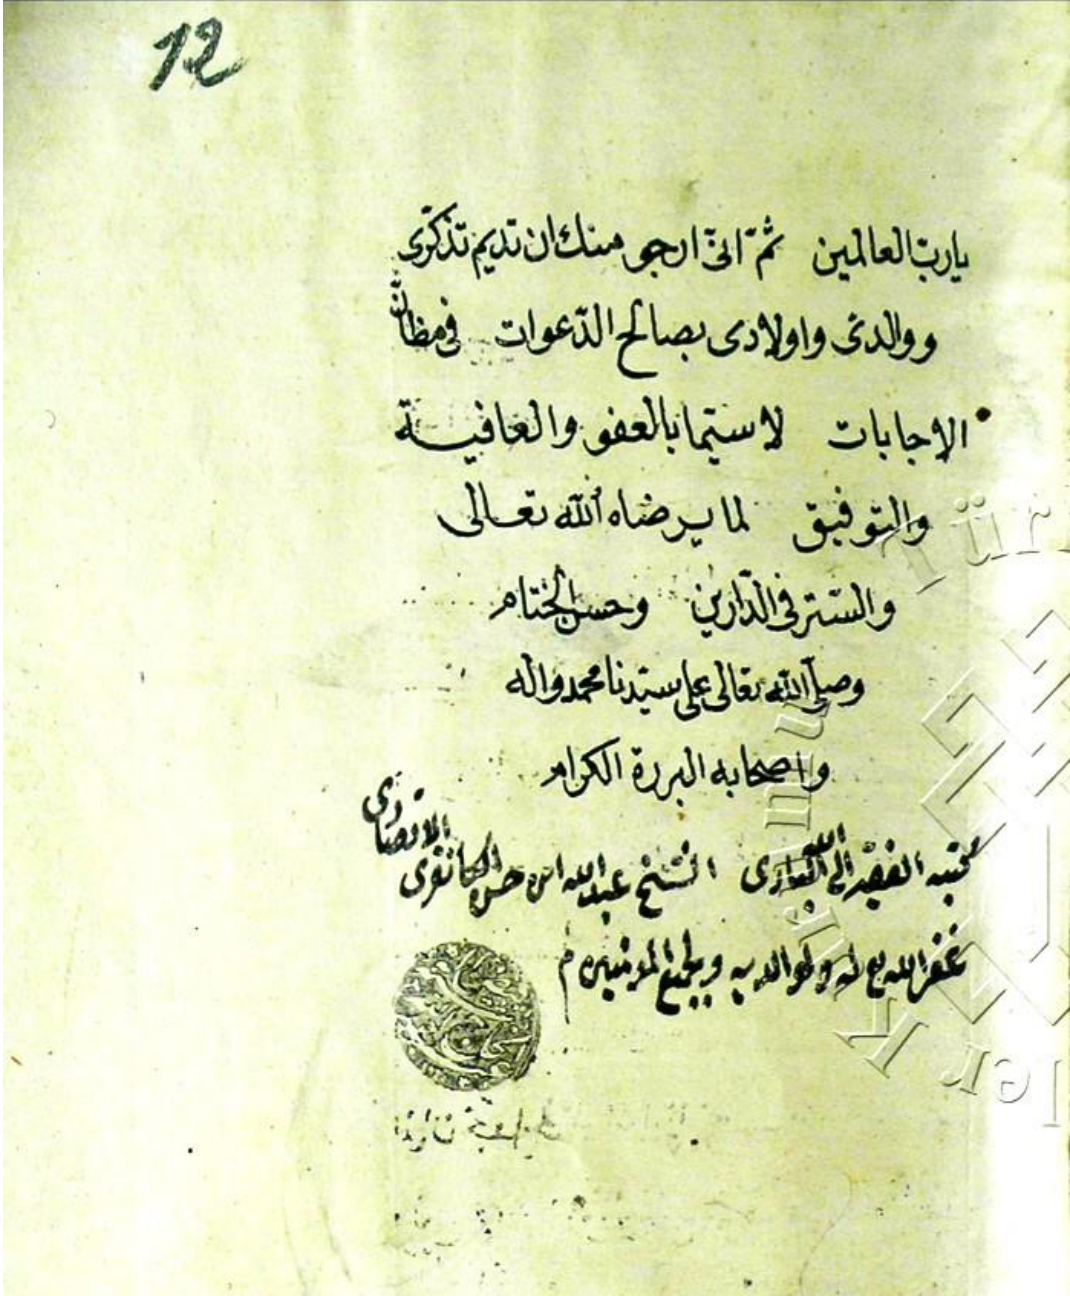 12
يا رب العالمين ثمّ انّى ارجو منك ان تديم تذكّرى
ووالدىّ واولادى بصالح الدّعوات فى مظانّ
الاجابات لا سيّما بالعفو والعافيـة
والتوفيق لما يرضاه الله تعـالى
والستر فى الدّارين وحسن الختام
وصلى الله تعالى على سيّدنا محمد واله
واصحابه البررة الكرام
كتبه الفقير الى الله البارى الشيخ عبد الله ابن حسن الكانغرى الانصارى
غفر الله له ولوالديه ولجميع المؤمنين م
Tür
ler K